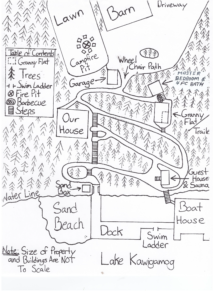 Driveway
Lawn
Barn
Campfire
Pit
Wheel
Chair Path
Garage
Table of Contents
Granny Flat
Trees
Swim Ladder
Fire Pit
Barbecue
Steps
Our
House
Granny
Flat
Trail
Guest
House
& Sauna
Water Line
Sand
Box
Sand
Beach
Boat
House
Dock
Swim
Ladder
Note: Size of Property
and Buildings Are NOT
To Scale
Lake Kawigamog